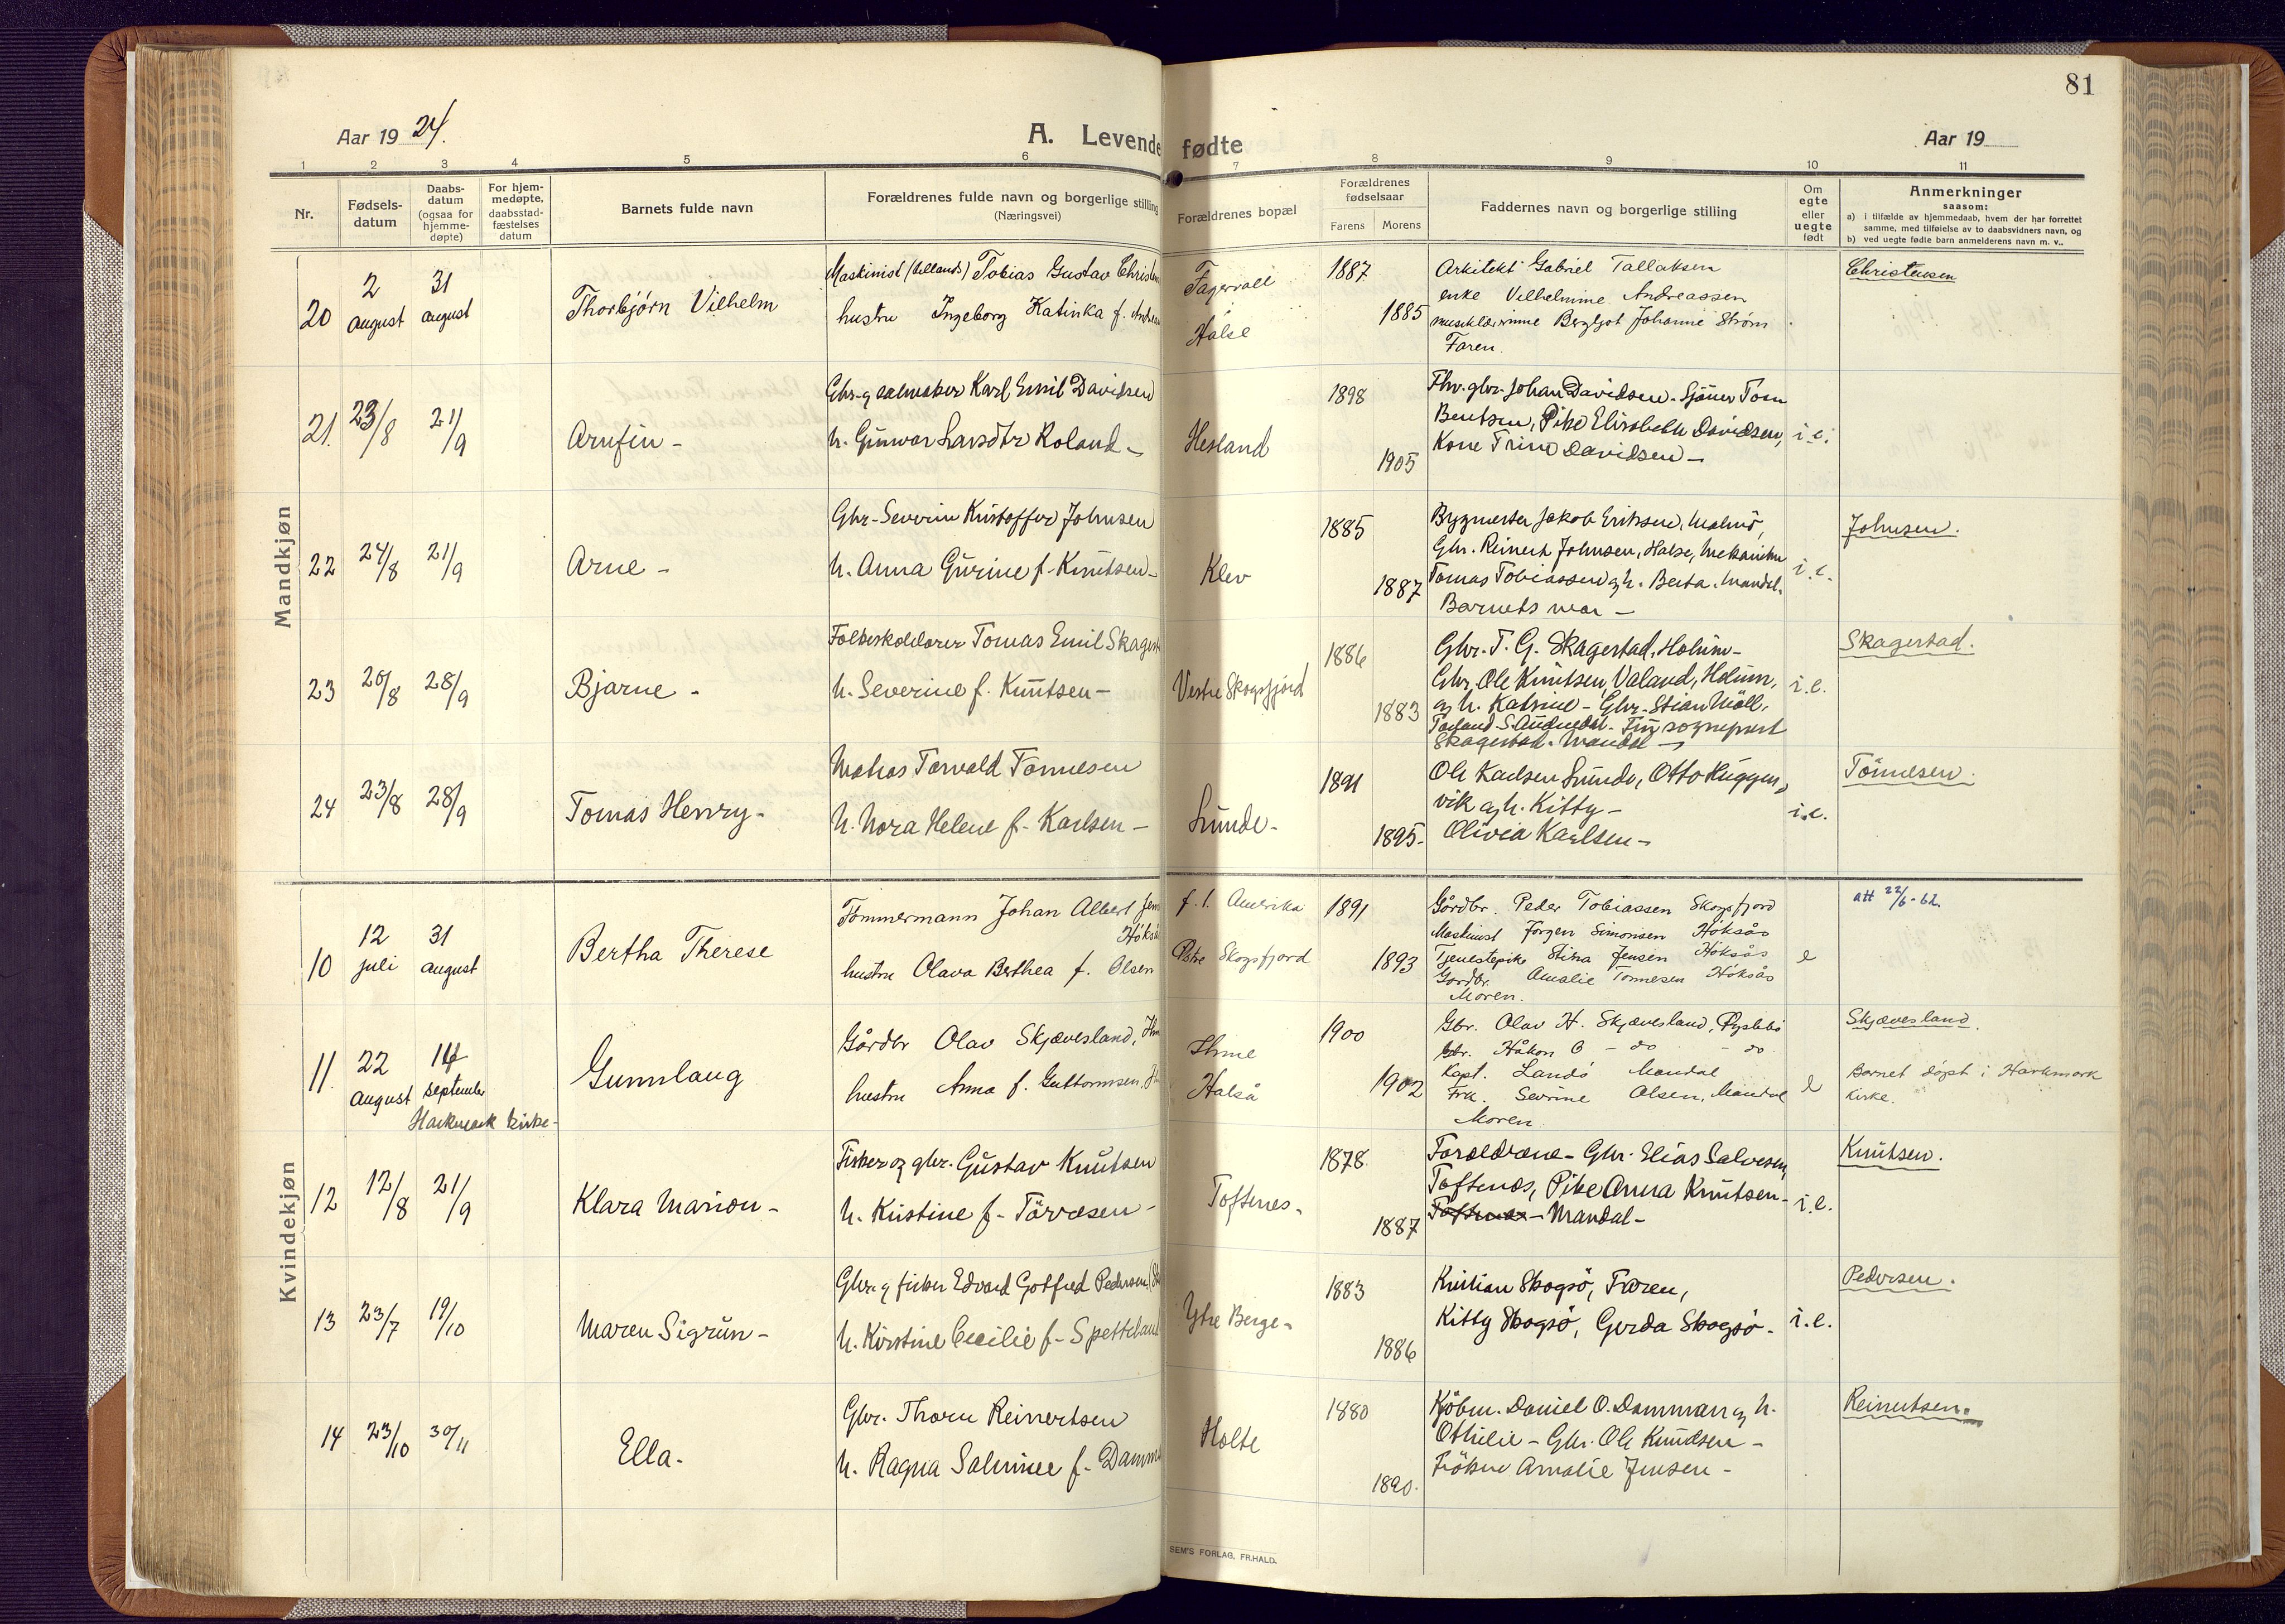 81
Aar 1924.
A. Levende fødte
Aar 19
1 2 3 4 5 6 7 8 9 10 11
Nr.
Fødsels-
datum
Daabs-
datum
(ogsaa for
hjemme-
døpte)
For hjem-
medøpte,
daabsstad-
fæstelses
datum
Barnets fulde navn
Forældrenes fulde navn og borgerlige stilling
(Næringsvei)
Forældrenes bopæl
Forældrenes
fødselsaar
Farens Morens
Faddernes navn og borgerlige stilling
Om
egte
eller
uegte
født
Anmerkninger
saasom:
a) i tilfælde av hjemmedaab, hvem der har forrettet
samme, med tilføielse av to daabsvidners navn, og
b) ved uegte fødte barn anmelderens navn m. v..
Mandkjøn
20
2
august
31
august
Thorbjørn Vilhelm
Maskinist Tobias Gustav
hustru Ingeborg Katinka f.
Halse
1887
1885
Arkitekt Gabriel Tallaksen
enke Vilhelmine Andreassen
musiklærerinne Bergljot Johanne Strøm
Faren.
Christensen
21.
23/8
21/9
Arnfin -
Gbr. g salmaker Karl Emil Davidsen
h. Gunvor Larsdtr Roland -
Hesland
1898
1905
Fhv. gbr. Johan Davidsen. Sjömen Tom
Bentsen, Pike Elisabeth Davidsen,
Kone Trine Davidsen -
i.e.
22
24/8
21/9
Arne -
Gbr. Severin Kristoffer Johnsen
h. Anna Gurine f. Knutsen -
Klev
1885
1887
Bygmester Jakob Eriksen, Malmö,
Gbr. Reinert Johnsen, Halse, Mekaniker
Tomas Tobiassen g h. Berta. Mandal.
Barnets mor -
i.e.
Johnsen.
23
28/9
Bjarne -
Folkeskolelærer Tomas Emil
h. Severine f. Knutsen -
Vestre Skogsfjord
1886
1883
Gbr. T. G. Skagestad, Holum -
Gbr. Ole Knutsen, Valand, Holum,
og h. Katrine - Gbr. Stian Möll,
S. Audnedal. sogneprest
Skagestad. Mandal -
i.e.
Skagestad.
24
23/8
28/9
Tomas Henry -
Matros Torvald Tönnesen
h. Nora Helene f. Karlsen -
Lunde -
1891
1895.
Ole Karlsen Lunde, Otto Huggen,
vik g h. Kitty -
Olivia Karlsen -
i.e.
Tönnesen.
Kvindekjøn
10
12
juli
31
august
Bertha Therese
Tømmermann Johan Albert
hustru Olava Berthea f. Olsen
f. t. Amerika
Skogsfjord
1891
1893
Gårdbr. Peder Tobiassen Skogsfjord
Maskinist Jørgen Simonsen Höksås
Tjenestepike Stina Jensen Höksås
Gårdbr. Amalie Tønnesen Höksås
Moren.
e
att 22/6-62.
11.
22
august
14
september
Harkmark kirke -
Gunnlaug
Gårdbr Olav Skjævesland,
hustru Anna f. Guttormsen,
Ihme
Halså
1900
1902
Gbr. Olav H. Skjævesland,
Gbr. Håkon O - do - do
Kapt. Landö Mandal
Frk. Sevrine Olsen, Mandal
Moren.
e
Skjævesland.
Barnet döpt i Harkmark
kirke.
12
12/8
21/9
Klara Marion -
Fisker og gbr. Gustav Knutsen
h. Kristine f. Törresen -
Toftenes.
1878
1887
Foreldrene - Gbr. Elias Salvesen,
Toftenes, Pike Anna Knutsen -
Mandal -
i.e.
Knutsen.
13
23/7
19/10
Maren Sigrun -
Gbr. g fisker Edvard Gotfred Pedersen
h. Kirstine Cecilie f. Spetteland
Ytre Berge -
1883
1886
Kristian Skogsö, Faren,
Kitty Skogsö, Gerda Skogsö.
i.e.
Pedersen.
14
23/10
30/11
Ella.
Gbr. Thorn Reinertsen
h. Ragna Salmine f.
Holte
1880
1890.
Kjöbm. Daniel O. Damman g h.
Othilie - Gbr. Ole Knudsen -
Fröken Amalie Jensen -
Reinertsen.
SEM'S FORLAG, FR.HALD.